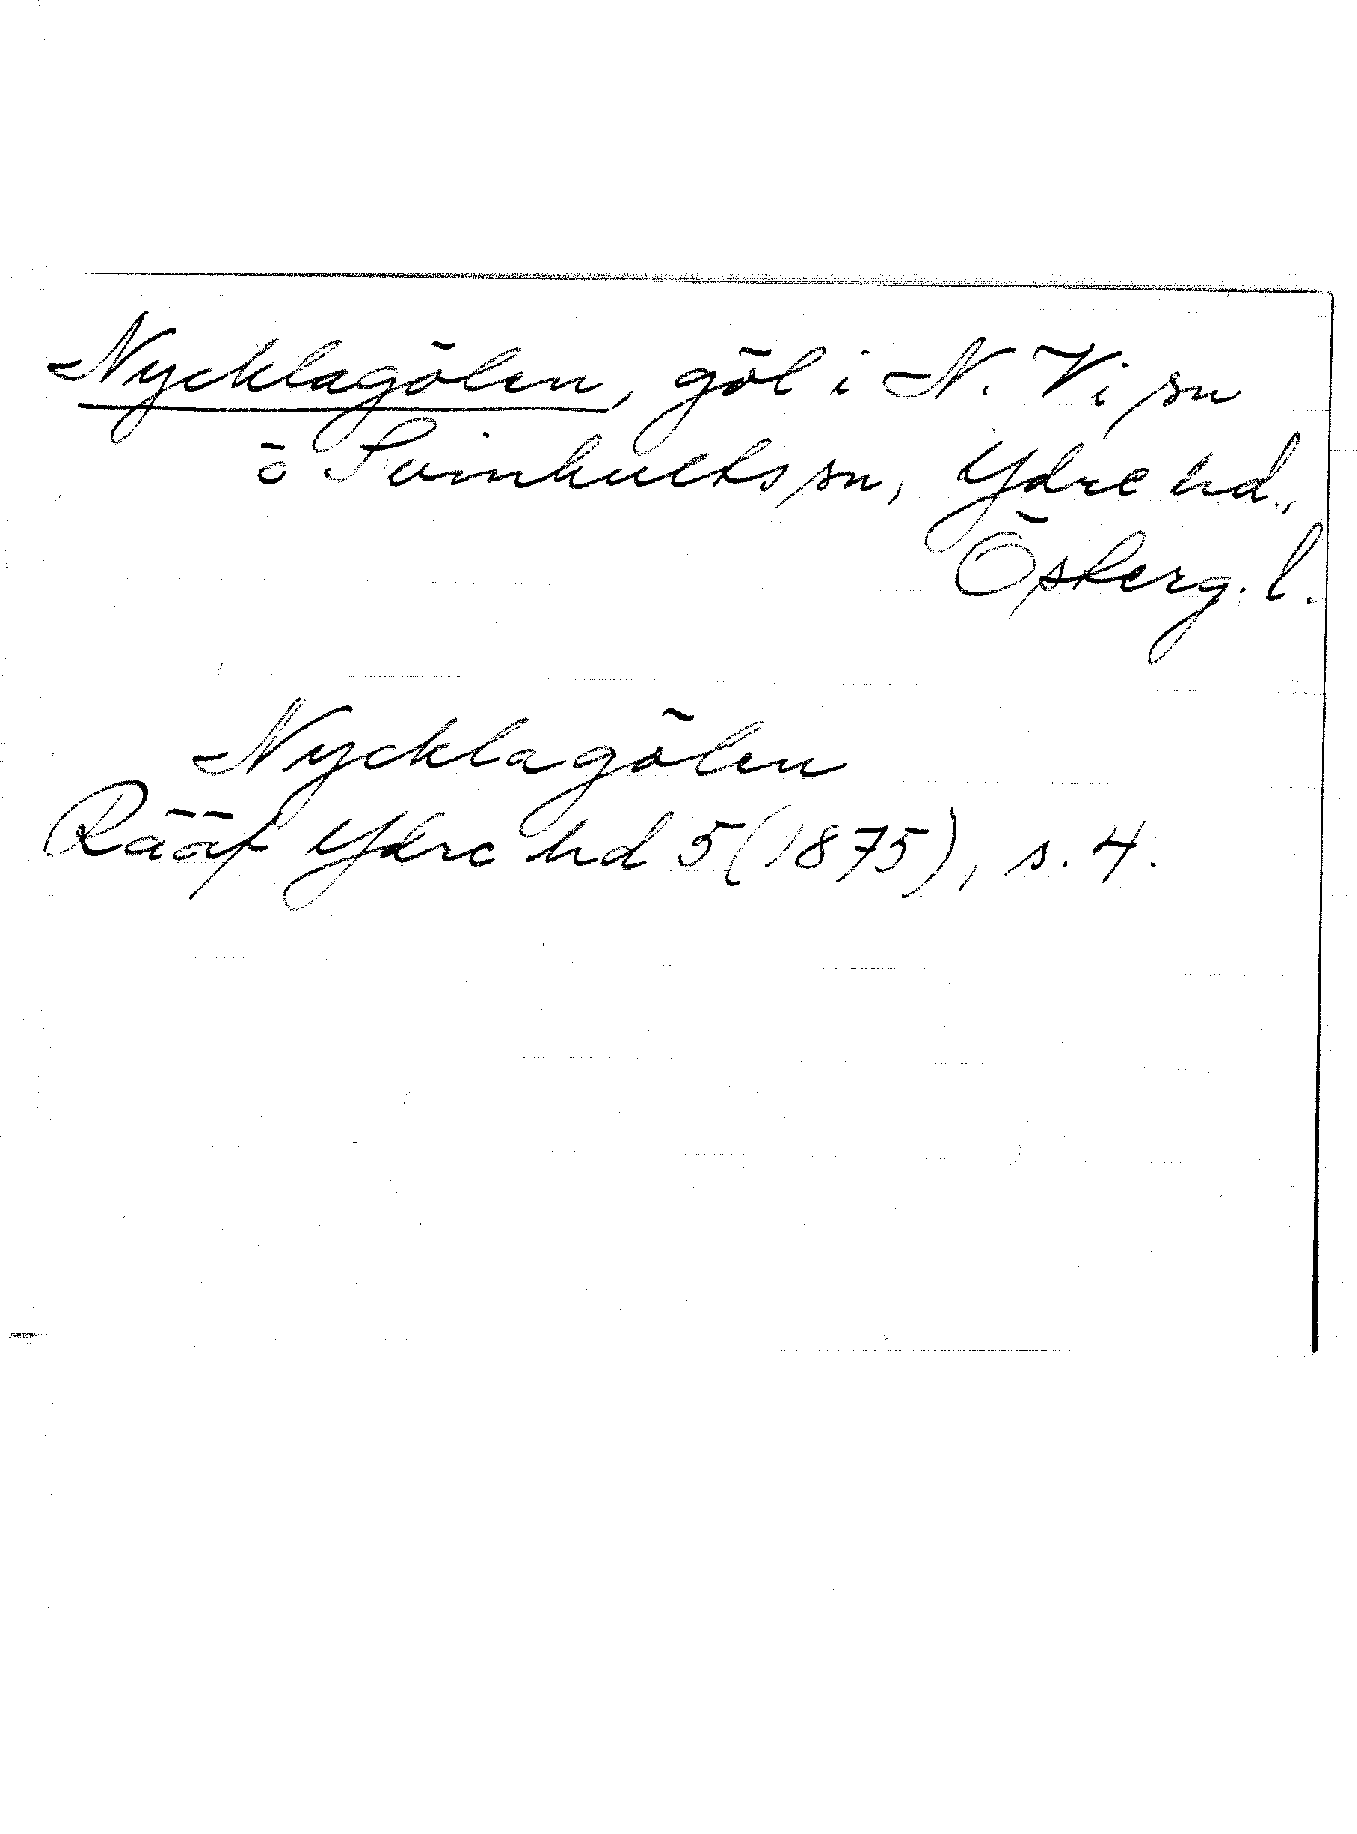 Nycklagölen, göl i N. Vi sn
o Svinhults sn, Ydre hd.,
Österg. l.
Nycklagölen
Rääf Ydre hd 5 (1875), s. 4.